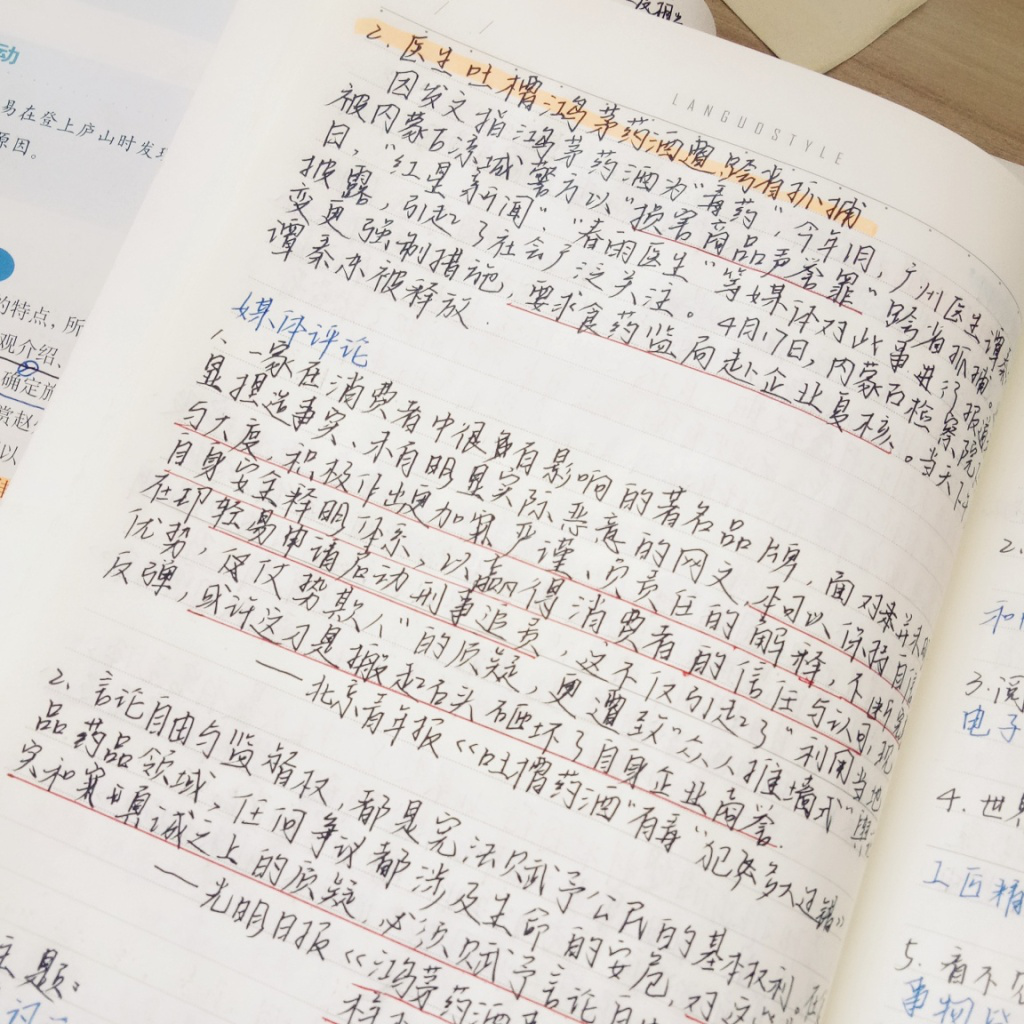 LANGUOSTYLE
2. 医生吐槽鸿茅药酒遭跨省抓捕
因发文指鸿茅药酒为“毒药”,今年1月,广州医生谭秦
被内蒙古凉城警方以“损害商品声誉罪”跨省抓捕。
日,“红星新闻”、“春雨医生”等媒体对此事进行报道
披露,引起了社会广泛关注。4月17日,内蒙古检察院
变更强制措施,要求食药监局赴企业复核。当天下午
谭秦东被释放.
媒体评论
1、一家在消费者中很有影响的著名品牌,面对并未明
显捏造事实、未有明显实际恶意的网文,本可以保持自信
与大度,积极作出更加严谨、负责任的解释,不断完
自身安全释明体系,以赢得消费者的信任与认可,现
在却轻易申请启动刑事追责,这不仅引起了“利用当地
优势,仗势欺人”的质疑,更遭致“众人推墙式”
反弹,或许这才是搬起石头砸坏了自身企业商誉.
——北京青年报《吐槽药酒“有毒”犯多大过错》
2. 言论自由与监督权,都是宪法赋予公民的基本权利。在
品药品领域,任何争议都涉及生命的安危,对这
实和真诚之上的质疑,必须赋予言论自
——光明日报《鸿茅药酒
主题:
动
易在登上庐山时发现
原因。
的特点,所
观介绍、
确定
赏赵
以
2.
和
3. 阅
电子
4. 世界
工匠精
5. 看不见
事物